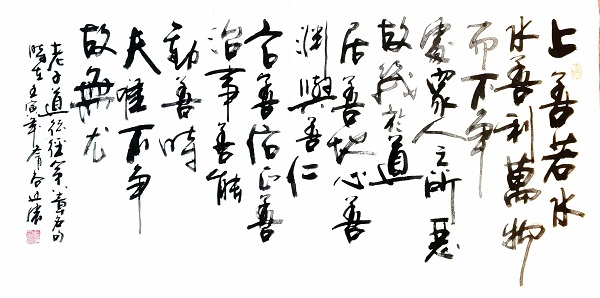 上善若水
水善利萬物
而不争
處眾人之所惡
故幾於道
居善地心善
渊與善仁
言善信正善
治事善能
動善時
夫唯不争
故無尤
老子道德經名句
時在壬寅年